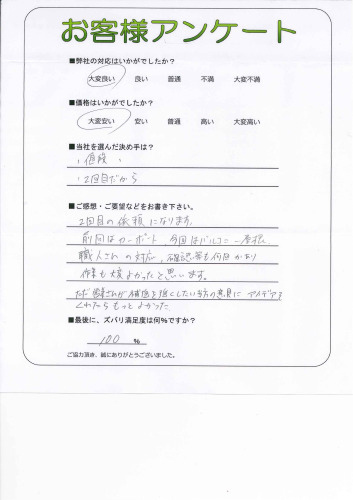 お客様アンケート
■弊社の対応はいかがでしたか?
大変良い 良い 普通 不満 大変不満
■価格はいかがでしたか?
大変安い 安い 普通 高い 大変高い
■当社を選んだ決め手は?
・値段
・2回目だから
■ご感想・ご要望などをお書き下さい。
2回目の依頼になります。
前回はカーポート、今回はバルコニー
職人さんの対応、確認等も何回かあり
作業も大変よかったと思います。
ただ 強くしたい当方の意見に アイデアを
くれたらもっとよかった
■最後に、ズバリ満足度は何%ですか?
100 %
ご協力頂き、誠にありがとうございました。